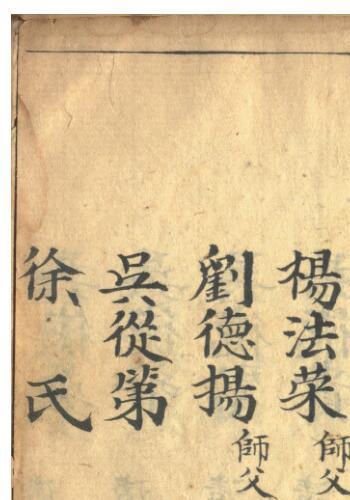 楊法菜師父
劉德揚師父
吳從第
徐氏